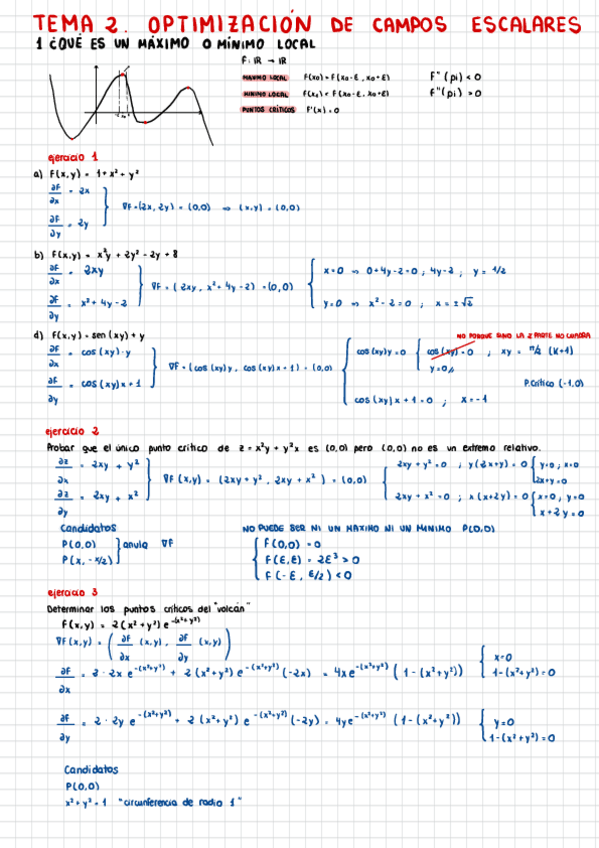 TEMA 2. OPTIMIZACIÓN DE CAMPOS ESCALARES
1 ¿QUÉ ES UN MÁXIMO O MÍNIMO LOCAL
F: IR → IR
MÁXIMO LOCAL F(x₀) > F(x₀-ε, x₀+ε) F''(pi) < 0
MINIMO LOCAL F(x₀) < F(x₀-ε, x₀+ε) F''(pi) > 0
PUNTOS CRÍTICOS F'(x) = 0
ejercicio 1
a) F(x,y) = 1 + x² + y²
∂F/∂x = 2x
∂F/∂y = 2y
∇F = (2x, 2y) = (0,0) ⇒ (x,y) = (0,0)
b) F(x,y) = x²y + 2y² - 2y + 8
∂F/∂x = 2xy
∂F/∂y = x² + 4y - 2
∇F = (2xy, x² + 4y - 2) = (0,0)
x=0 ⇒ 0+4y-2=0 ; 4y=2 ; y = 1/2
y=0 ⇒ x²-2=0 ; x = ±√2
d) F(x,y) = sen (xy) + y
NO PORQUE SINO LA 2 PARTE NO CUADRA
∂F/∂x = cos (xy)·y
∂F/∂y = cos (xy)x + 1
∇F = (cos (xy)y, cos (xy)x + 1) = (0,0)
cos (xy)y = 0 cos (xy) = 0 ; xy = π/2 (K+1)
y=0
P.Crítico (-1,0)
cos (xy)x + 1 = 0 ; x = -1
ejercicio 2
Probar que el único punto crítico de z = x²y + y²x es (0,0) pero (0,0) no es un extremo relativo.
∂z/∂x = 2xy + y²
∂z/∂y = 2xy + x²
∇F(x,y) = (2xy + y², 2xy + x²) = (0,0)
2xy + y² = 0 ; y(2x+y) = 0 y=0 ; x=0
2x+y=0
2xy + x² = 0 ; x(x+2y) = 0 x=0 ; y=0
x+2y=0
Candidatos
P(0,0)
P(x, -x/2)
anula ∇F
NO PUEDE SER NI UN MÁXIMO NI UN MINIMO P(0,0)
F(0,0) = 0
F(ε,ε) = 2ε³ > 0
F(-ε, ε/2) < 0
ejercicio 3
Determinar los puntos críticos del "volcán"
F(x,y) = 2(x² + y²) e^-(x²+y²)
∇F(x,y) = (∂F/∂x (x,y), ∂F/∂y (x,y))
∂F/∂x = 2·2x e^-(x²+y²) + 2(x²+y²) e^-(x²+y²) (-2x) = 4xe^-(x²+y²) (1-(x²+y²))
x=0
1-(x²+y²)=0
∂F/∂y = 2·2y e^-(x²+y²) + 2(x²+y²) e^-(x²+y²) (-2y) = 4ye^-(x²+y²) (1-(x²+y²))
y=0
1-(x²+y²)=0
Candidatos
P(0,0)
x²+y²=1 "circunferencia de radio 1"